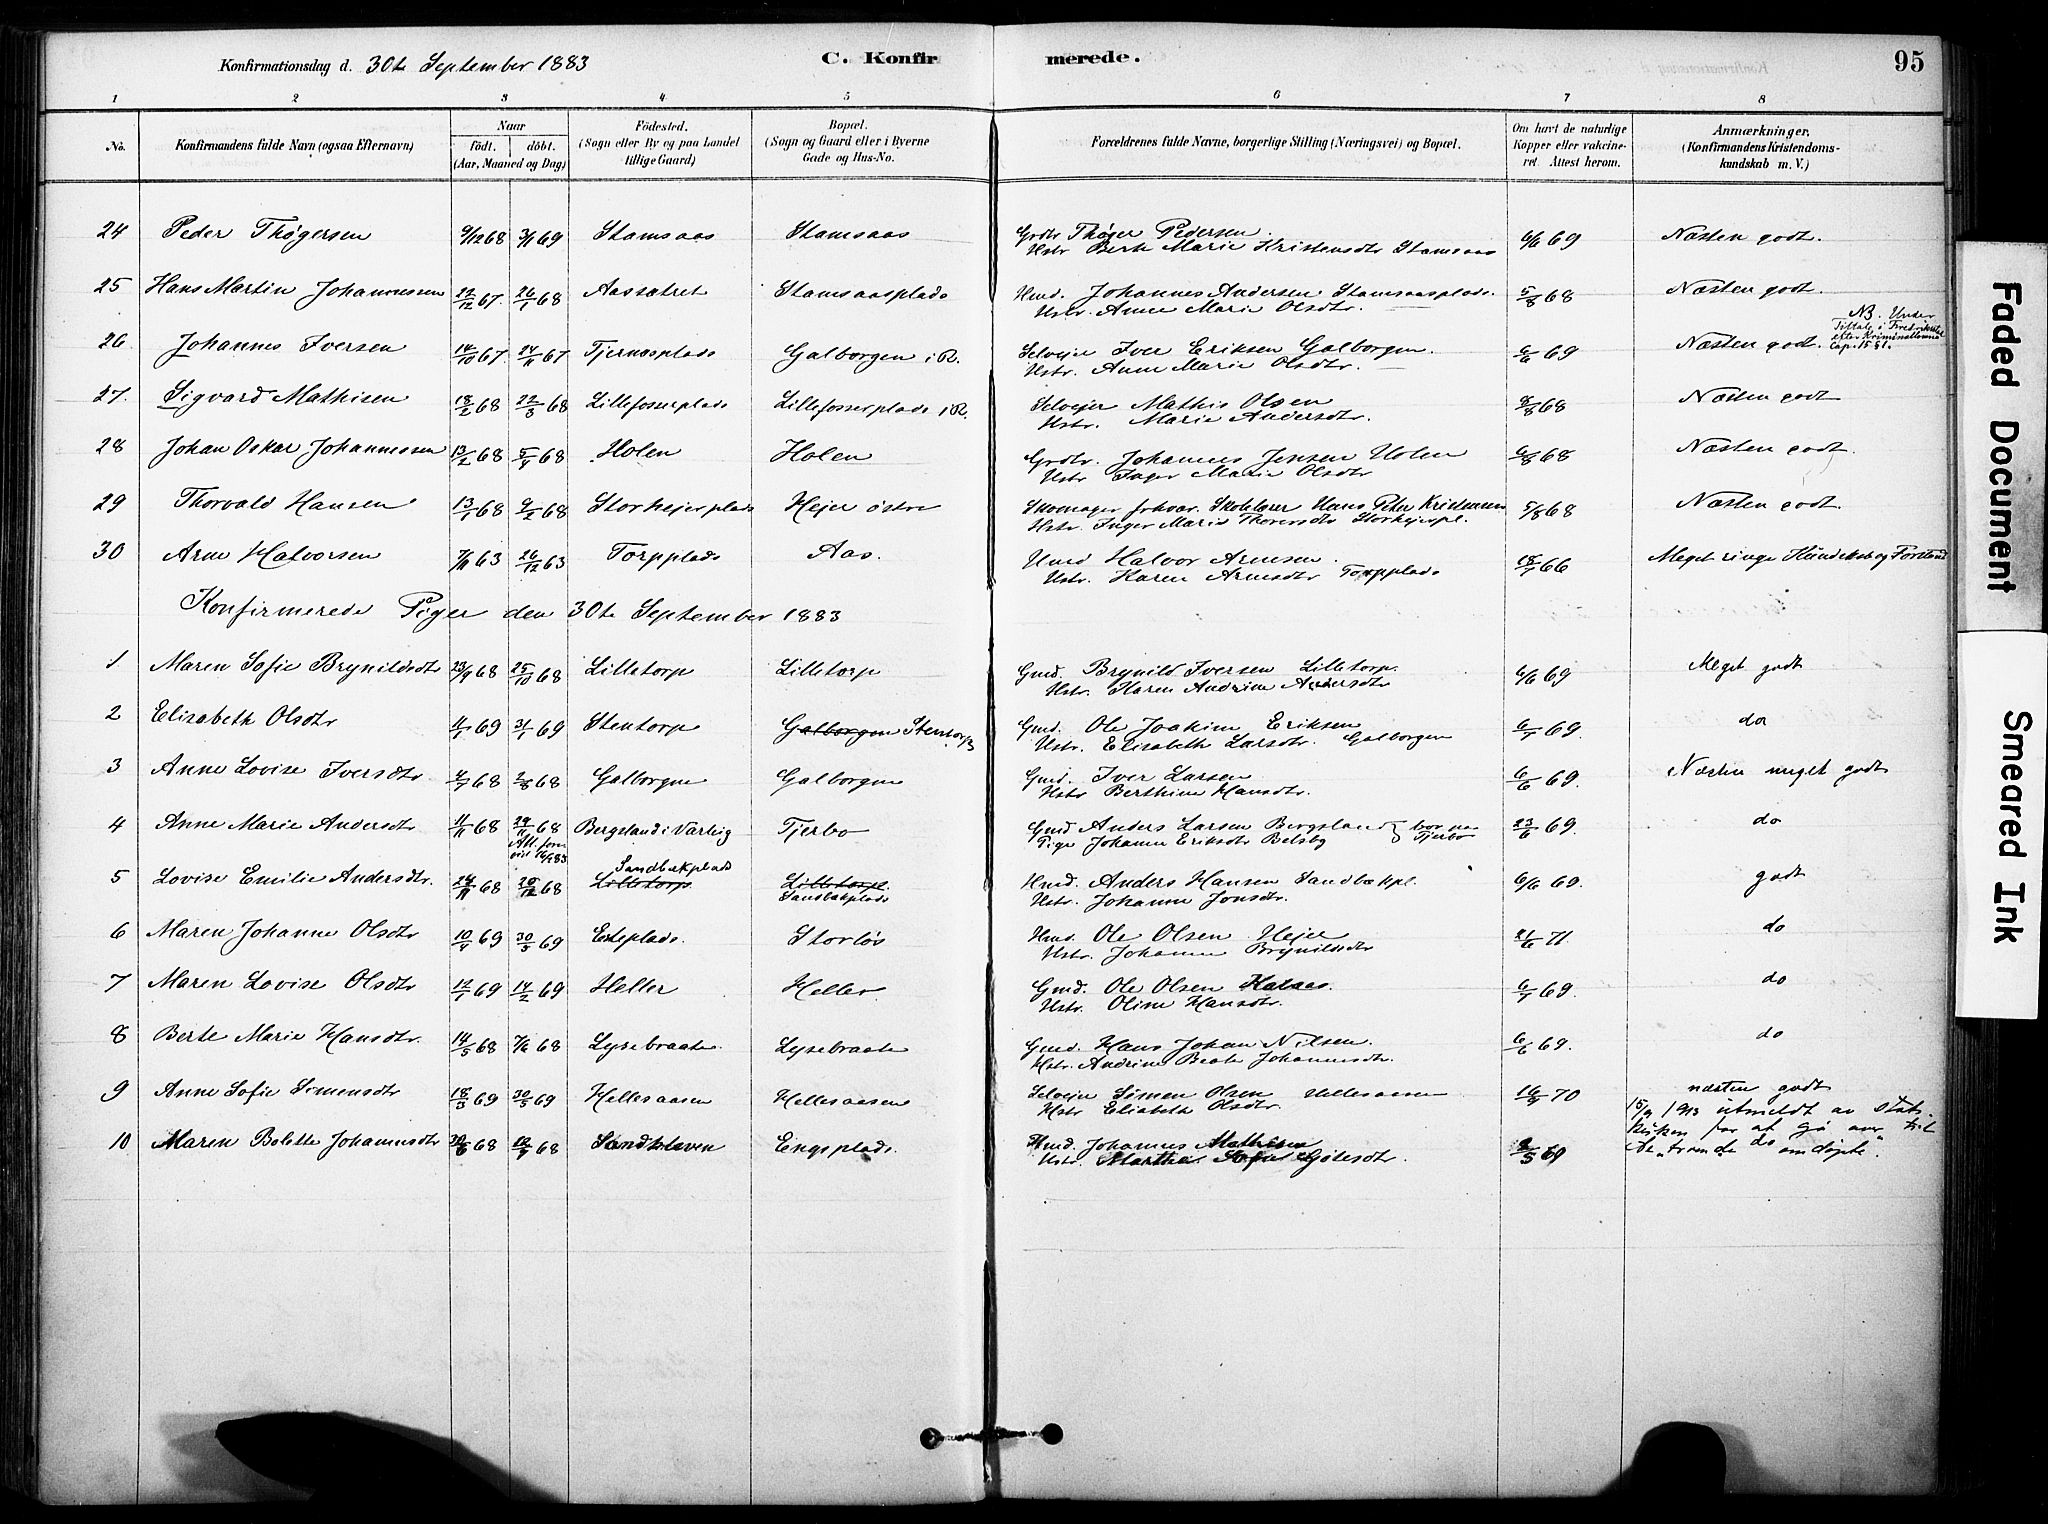 Konfirmationsdag d. 30te September 1883
C. Konfirmerede.
95
1 2 3 4 5 6 7 8
No.
Konfirmandens fulde Navn (ogsaa Efternavn)
Naar
födt. döbt.
(Aar, Maaned og Dag)
Födested.
(Sogn eller By og paa Landet
tillige Gaard)
Bopæl.
(Sogn og Gaard eller i Byerne
Gade og Hus-No.
Forældrenes fulde Navne, borgerlige Stilling (Næringsvei) og Bopæl.
Om havt de naturlige
Kopper eller vakcine-
ret. Attest herom.
Anmærkninger.
(Konfirmandens Kristendoms-
kundskab m. V.)
24 Peder Thøgersen 9/12 68 3/1 69 Stamsaas Stamsaas Grdbr Thøger Pedersen. 6/6 69 Næsten godt.
Hstr Berte Marie Kristensdtr Stamsaas
25 Hans Martin Johannessen 22/12 67. 26/1 68 Aassætret Stamsaasplads Hmd. Johannes Andersen Stamsaasplads. 5/8 68 Næsten godt.
Hstr. Anne Marie Olsdtr.
26 Johannes Iversen 14/10 67 24/11 67 Tjernæsplads Galborgen i R. Selveier Iver Eriksen Galborgen. 6/6 69 Næsten godt.
Hstr. Anne Marie Olsdtr.
NB. Under
Tiltale i Fredrikshald
efter Kriminallovens
Cap. 15 § 1.
27. Sigvard Mathisen 18/2 68 22/3 68 Lillefosserplads Lillefosserplads i R. Selveier Mathis Olsen 8/8 68 Næsten godt
Hstr. Marie Andersdtr.
28 Johan Oskar Johannessen 13/2 68 5/4 68 Holen Holen Grdbr. Johannes Jensen Holen 6/8 68 Næsten godt.
Hstr Inger Marie Olsdtr
29 Thorvald Hansen 13/1 68 9/2 68 Storhejerplads Hejer östre Skomager forhvær. Skolelærer Hans Peter Kristensen 5/8 68 Næsten godt.
Hstr. Inger Marie Thorersdtr Storhejerpl.
30 Arne Halvorsen 7/11 63 26/12 63 Torpplads Aas. Hmd Halvor Arnesen. 18/7 66 Meget ringe Kundskab og Forstand
Hstr. Karen Arnesdtr Torpplads
Konfirmerede Piger den 30te September 1883
1 Maren Sofie Brynildsdtr 23/9 68 25/10 68 Lilletorp Lilletorp Gmd. Brynild Iversen Lilletorp. 6/6 69 Meget godt
Hstr. Karen Andrine Andersdtr
2 Elisabeth Olsdtr 11/1 69 31/1 69 Stentorp Galborgen Stentorp Gmd. Ole Joakim Eriksen 6/7 69. do
Hstr. Elisabeth Larsdtr. Galborgen
3 Anne Lovise Iversdtr 4/7 68 2/8 68 Galborgen Galborgen Gmd. Iver Larsen 6/6 69. Næsten meget godt
Hstr Berthine Hansdtr.
4 Anne Marie Andersdtr 11/11 68 29/11 68 Bergsland i Varteig Tjerbo Gmd Anders Larsen Bergsland } bor paa Tjerbo 23/6 69. do
Pige Johanne Eriksdtr Belsby
Att. fore
vist 16/9 83
5 Lovise Emilie Andersdtr. 24/11 68 20/12 68 Sandbækplads Lilletorp Lilletorpl. Sandbækplads Hmd. Anders Hansen Sandbækpl. 6/6 69. godt
Hstr. Johanne Jonsdtr.
6 Maren Johanne Olsdtr 10/4 69 30/5 69 Esteplads. Storløs Hmd. Ole Olsen Hejer 21/6 71. do
Hstr. Johanne Brynildsdtr
7 Maren Lovise Olsdtr 12/1 69 14/2 69 Heller Heller Gmd. Ole Olsen 6/7 69. do
Hstr. Oline Hansdtr.
8 Berte Marie Hansdtr. 14/5 68 7/6 68 Lysebraate. Lysebraate Gmd. Hans Johan Nilsen. 6/6 69. do
Hstr. Andrine Beate Johannesdtr.
9 Anne Sofie Simensdtr 18/3 69 30/5 69 Hellesaasen Hellesaasen Selveier Simen Olsen Hellesaasen 16/9 70 næsten godt
Hstr Elisabeth Olsdtr.
10 Maren Bolette Johannesdtr 68 68 Sandkleven Engsplads. Hmd. Johannes Mathisen 69 do
Hstr. Marthe Sofie Gjölesdtr.
15/9 1913 utmeldt av stats-
kirken for at gå over til
"de troende do omdøpte".
Faded Document
Smeared Ink